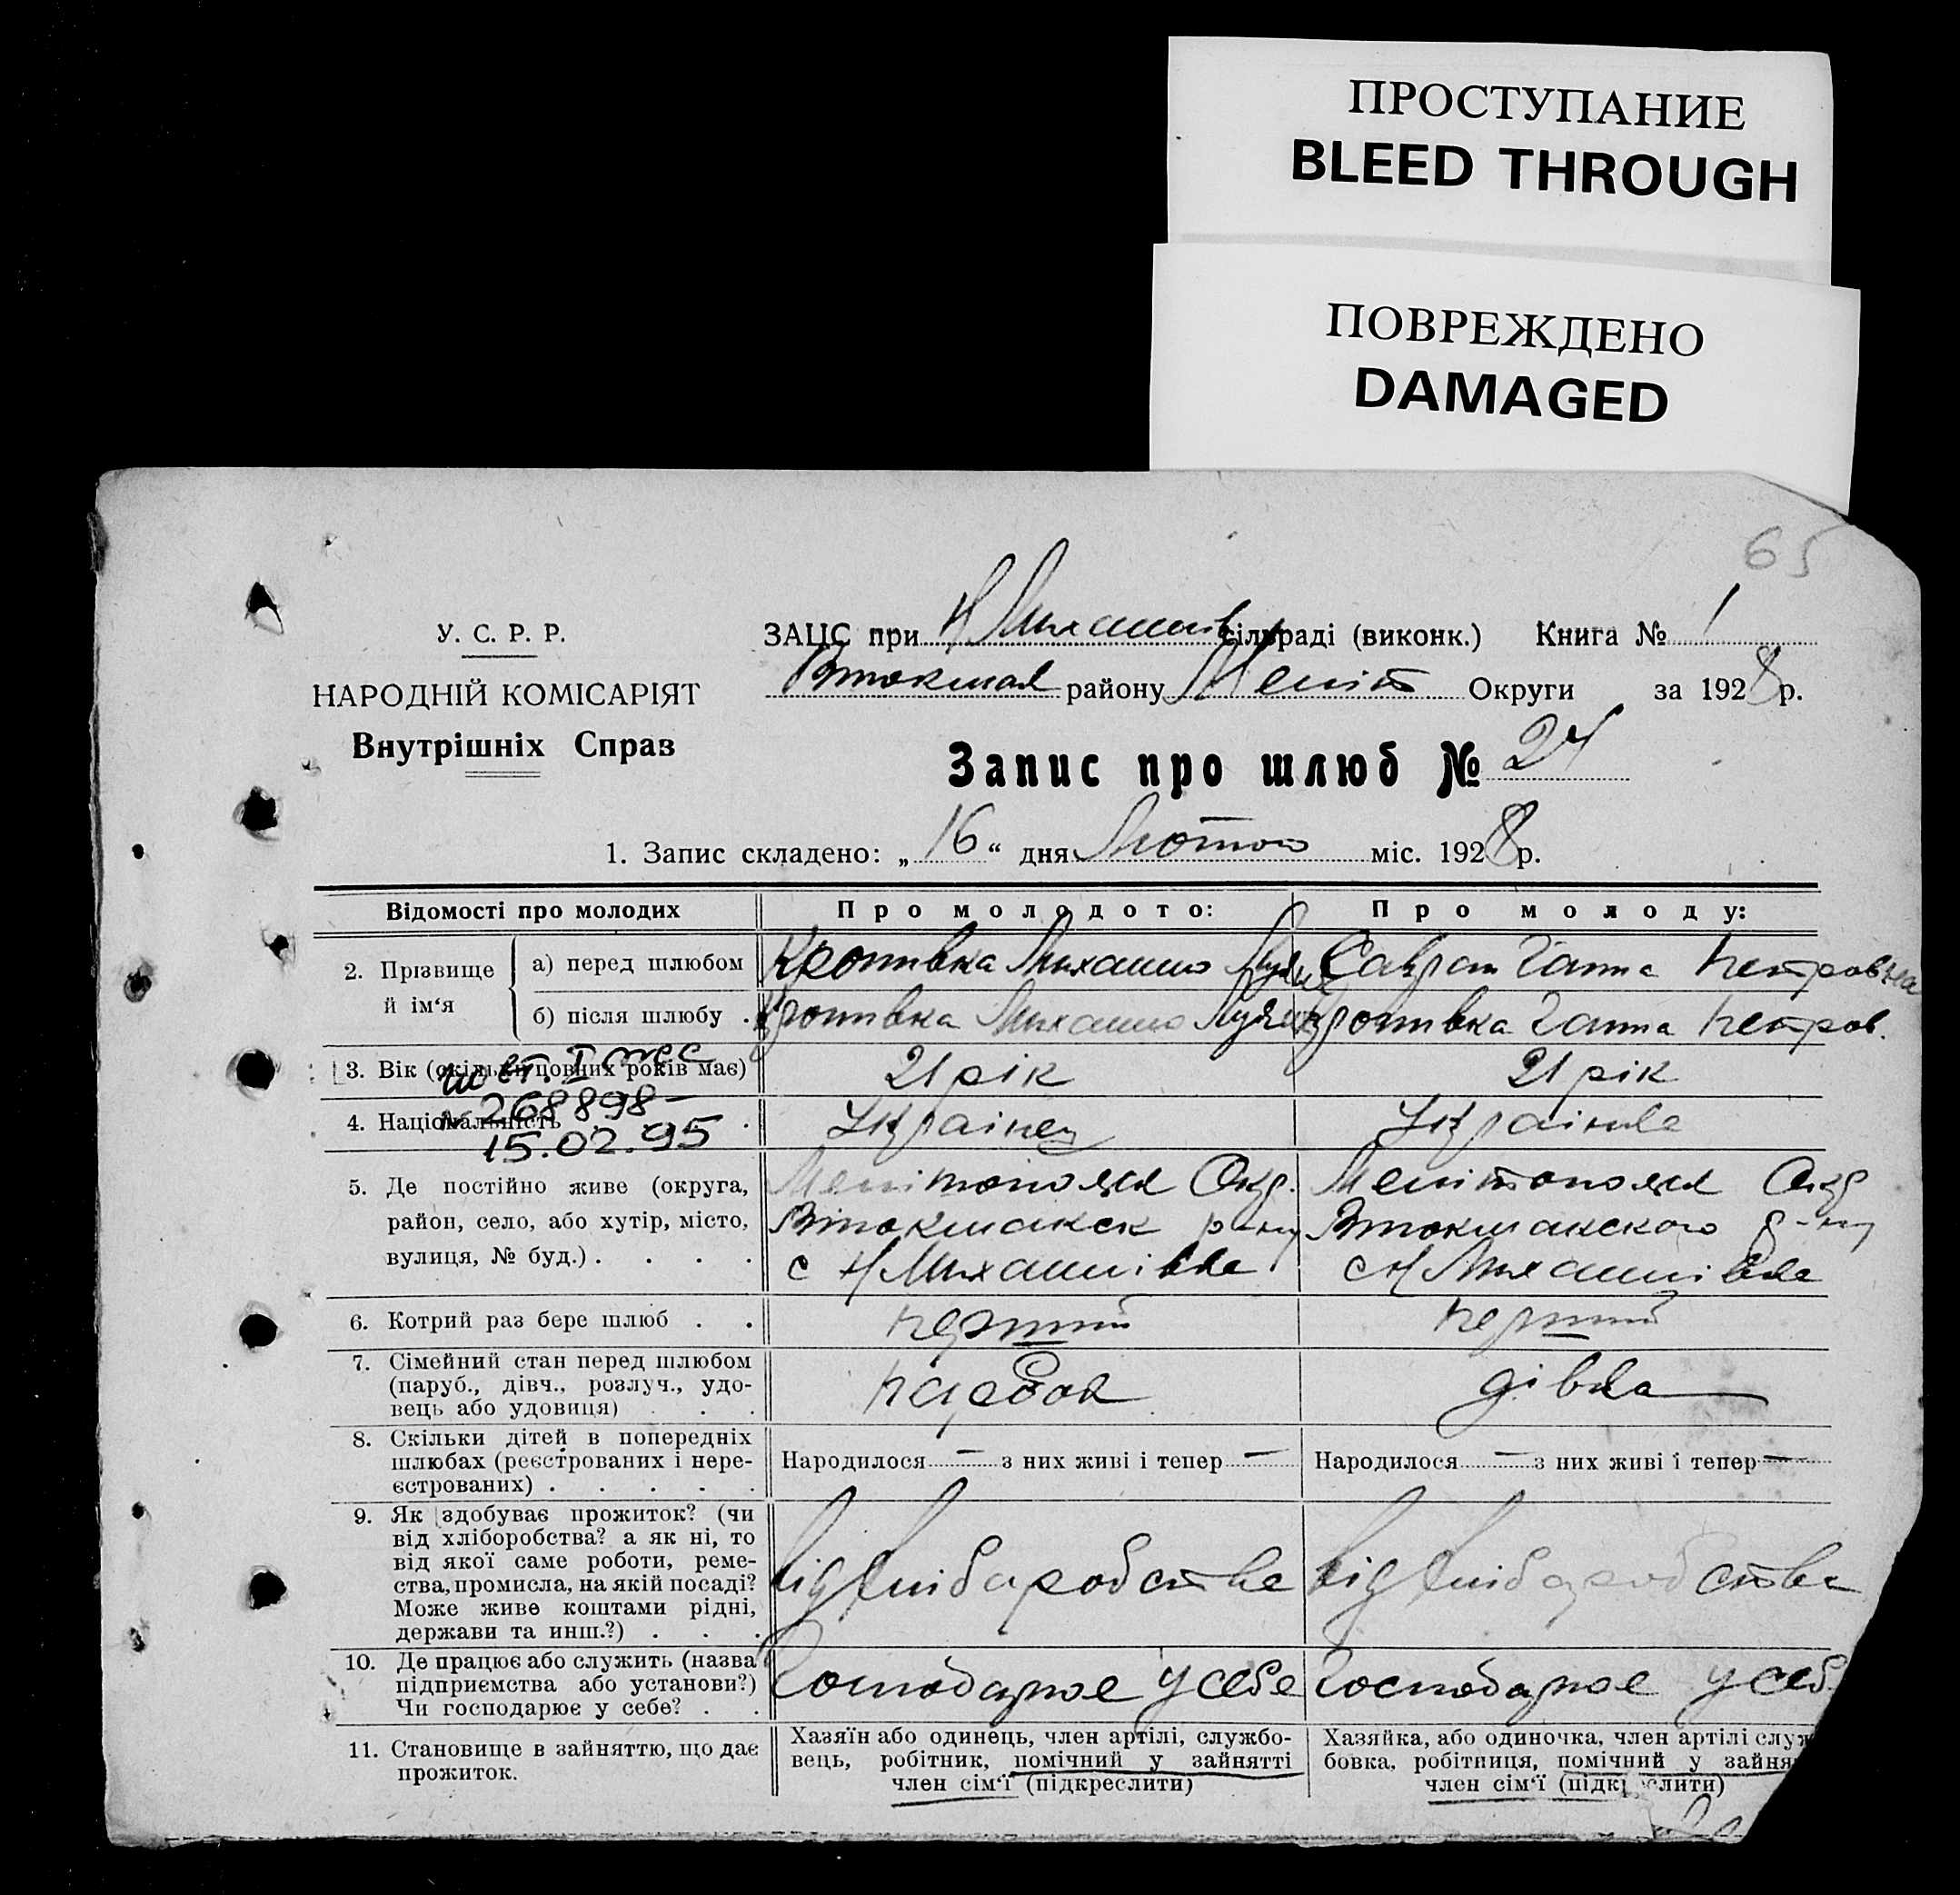 ПРОСТУПАНИЕ
BLEED THROUGH
ПОВРЕЖДЕНО
DAMAGED
65
У. С. Р. Р.
НАРОДНІЙ КОМІСАРІЯТ
Внутрішніх Справ
ЗАЦС при Н Михайлів сільраді (виконк.) Книга № 1
району Меліт Округи за 1928 р.
Запис про шлюб № 24
1. Запис складено: „ 16 “ дня Лютого міс. 1928 р.
Відомості про молодих
Про молодого:
Про молоду:
2. Прізвище й ім‘я
а) перед шлюбом
Кропивка Михайло
Ганна Петровна
б) після шлюбу .
Кропивка Михайло
Кропивка Ганна Петров.
3. Вік (скільки повних років має)
21 рік
21 рік
268898
15.02.95
4. Національність
Українец
Українка
5. Де постійно живе (округа,
район, село, або хутір, місто,
вулиця, № буд.) . . . .
Мелітопольск Окр.
Втокмакск р-ну
с Н Михайлівка
Мелітопольск Окр
Втокмакского р-ну
с Н Михайлівка
6. Котрий раз бере шлюб . .
перший
перший
7. Сімейний стан перед шлюбом
(паруб., дівч., розлуч., удо-
вець або удовиця) . . .
паробок
дівка
8. Скільки дітей в попередніх
шлюбах (реєстрованих і нере-
єстрованих) . . . . .
Народилося — з них живі і тепер —
Народилося — з них живі і тепер —
9. Як здобуває прожиток? (чи
від хліборобства? а як ні, то
від якої саме роботи, реме-
ства, промисла, на якій посаді?
Може живе коштами рідні,
держави та инш.?) . . .
від хліборобства
від хліборобства
10. Де працює або служить (назва
підприємства або установи?)
Чи господарює у себе? . .
Господарює у себе
Господарює у себ
11. Становище в зайняттю, що дає
прожиток.
Хазяїн або одинець, член артілі, службо-
вець, робітник, помічний у зайнятті
член сім‘ї (підкреслити)
Хазяйка, або одиночка, член артілі служ
бовка, робітниця, помічний у зайня
член сім‘ї (підкреслити)